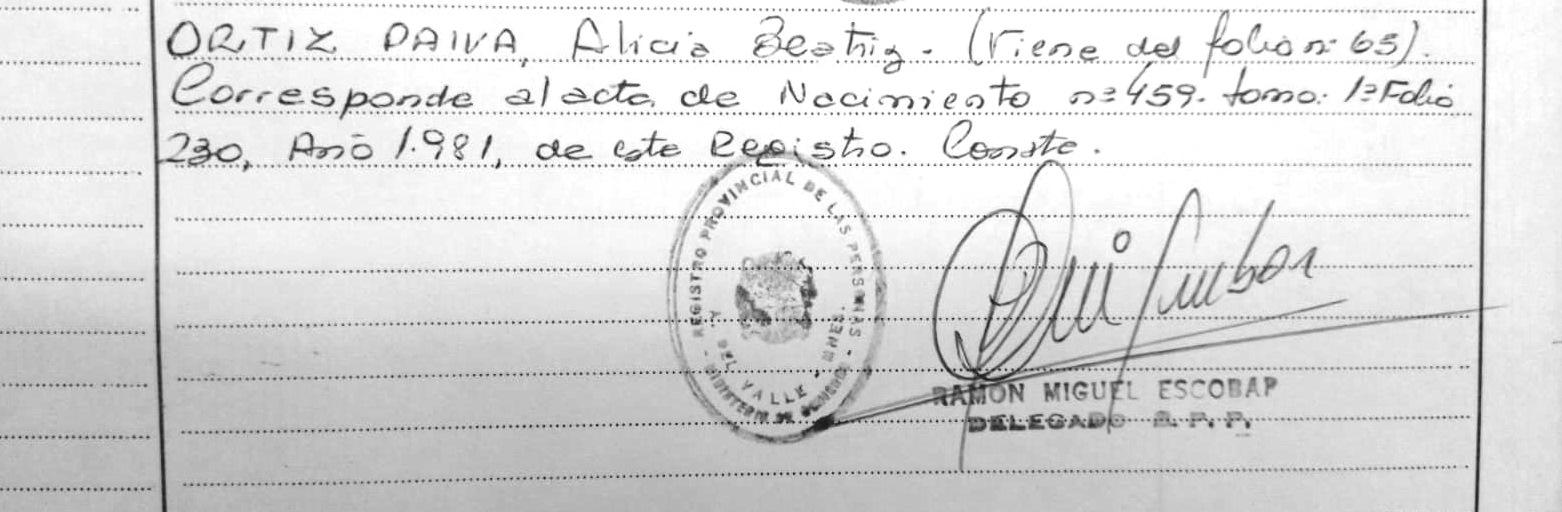 ORTIZ PAIVA, Alicia Beatriz. (Viene del folio nº 65).
Corresponde al acta de Nacimiento nº 459. tomo: 1º Folio
230, Año 1.981, de este Registro. Conste.
REGISTRO PROVINCIAL DE LAS PERSONAS
DEL VALLE - MNES.
MINISTERIO DE GOBIERNO
RAMON MIGUEL ESCOBAR
DELEGADO R. P. P.